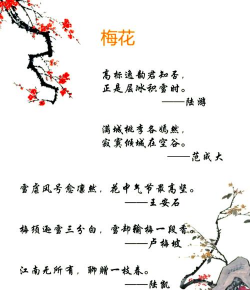 梅花
高标逸韵君知否，
正是层冰积雪时。
——陆游
满城桃李各嫣然，
寂寞倾城在空谷。
——范成大
雪虐风号愈凛然，花中气节最高坚。
——王安石
梅须逊雪三分白，雪却输梅一段香。
——卢梅坡
江南无所有，聊赠一枝春。
——陆凯